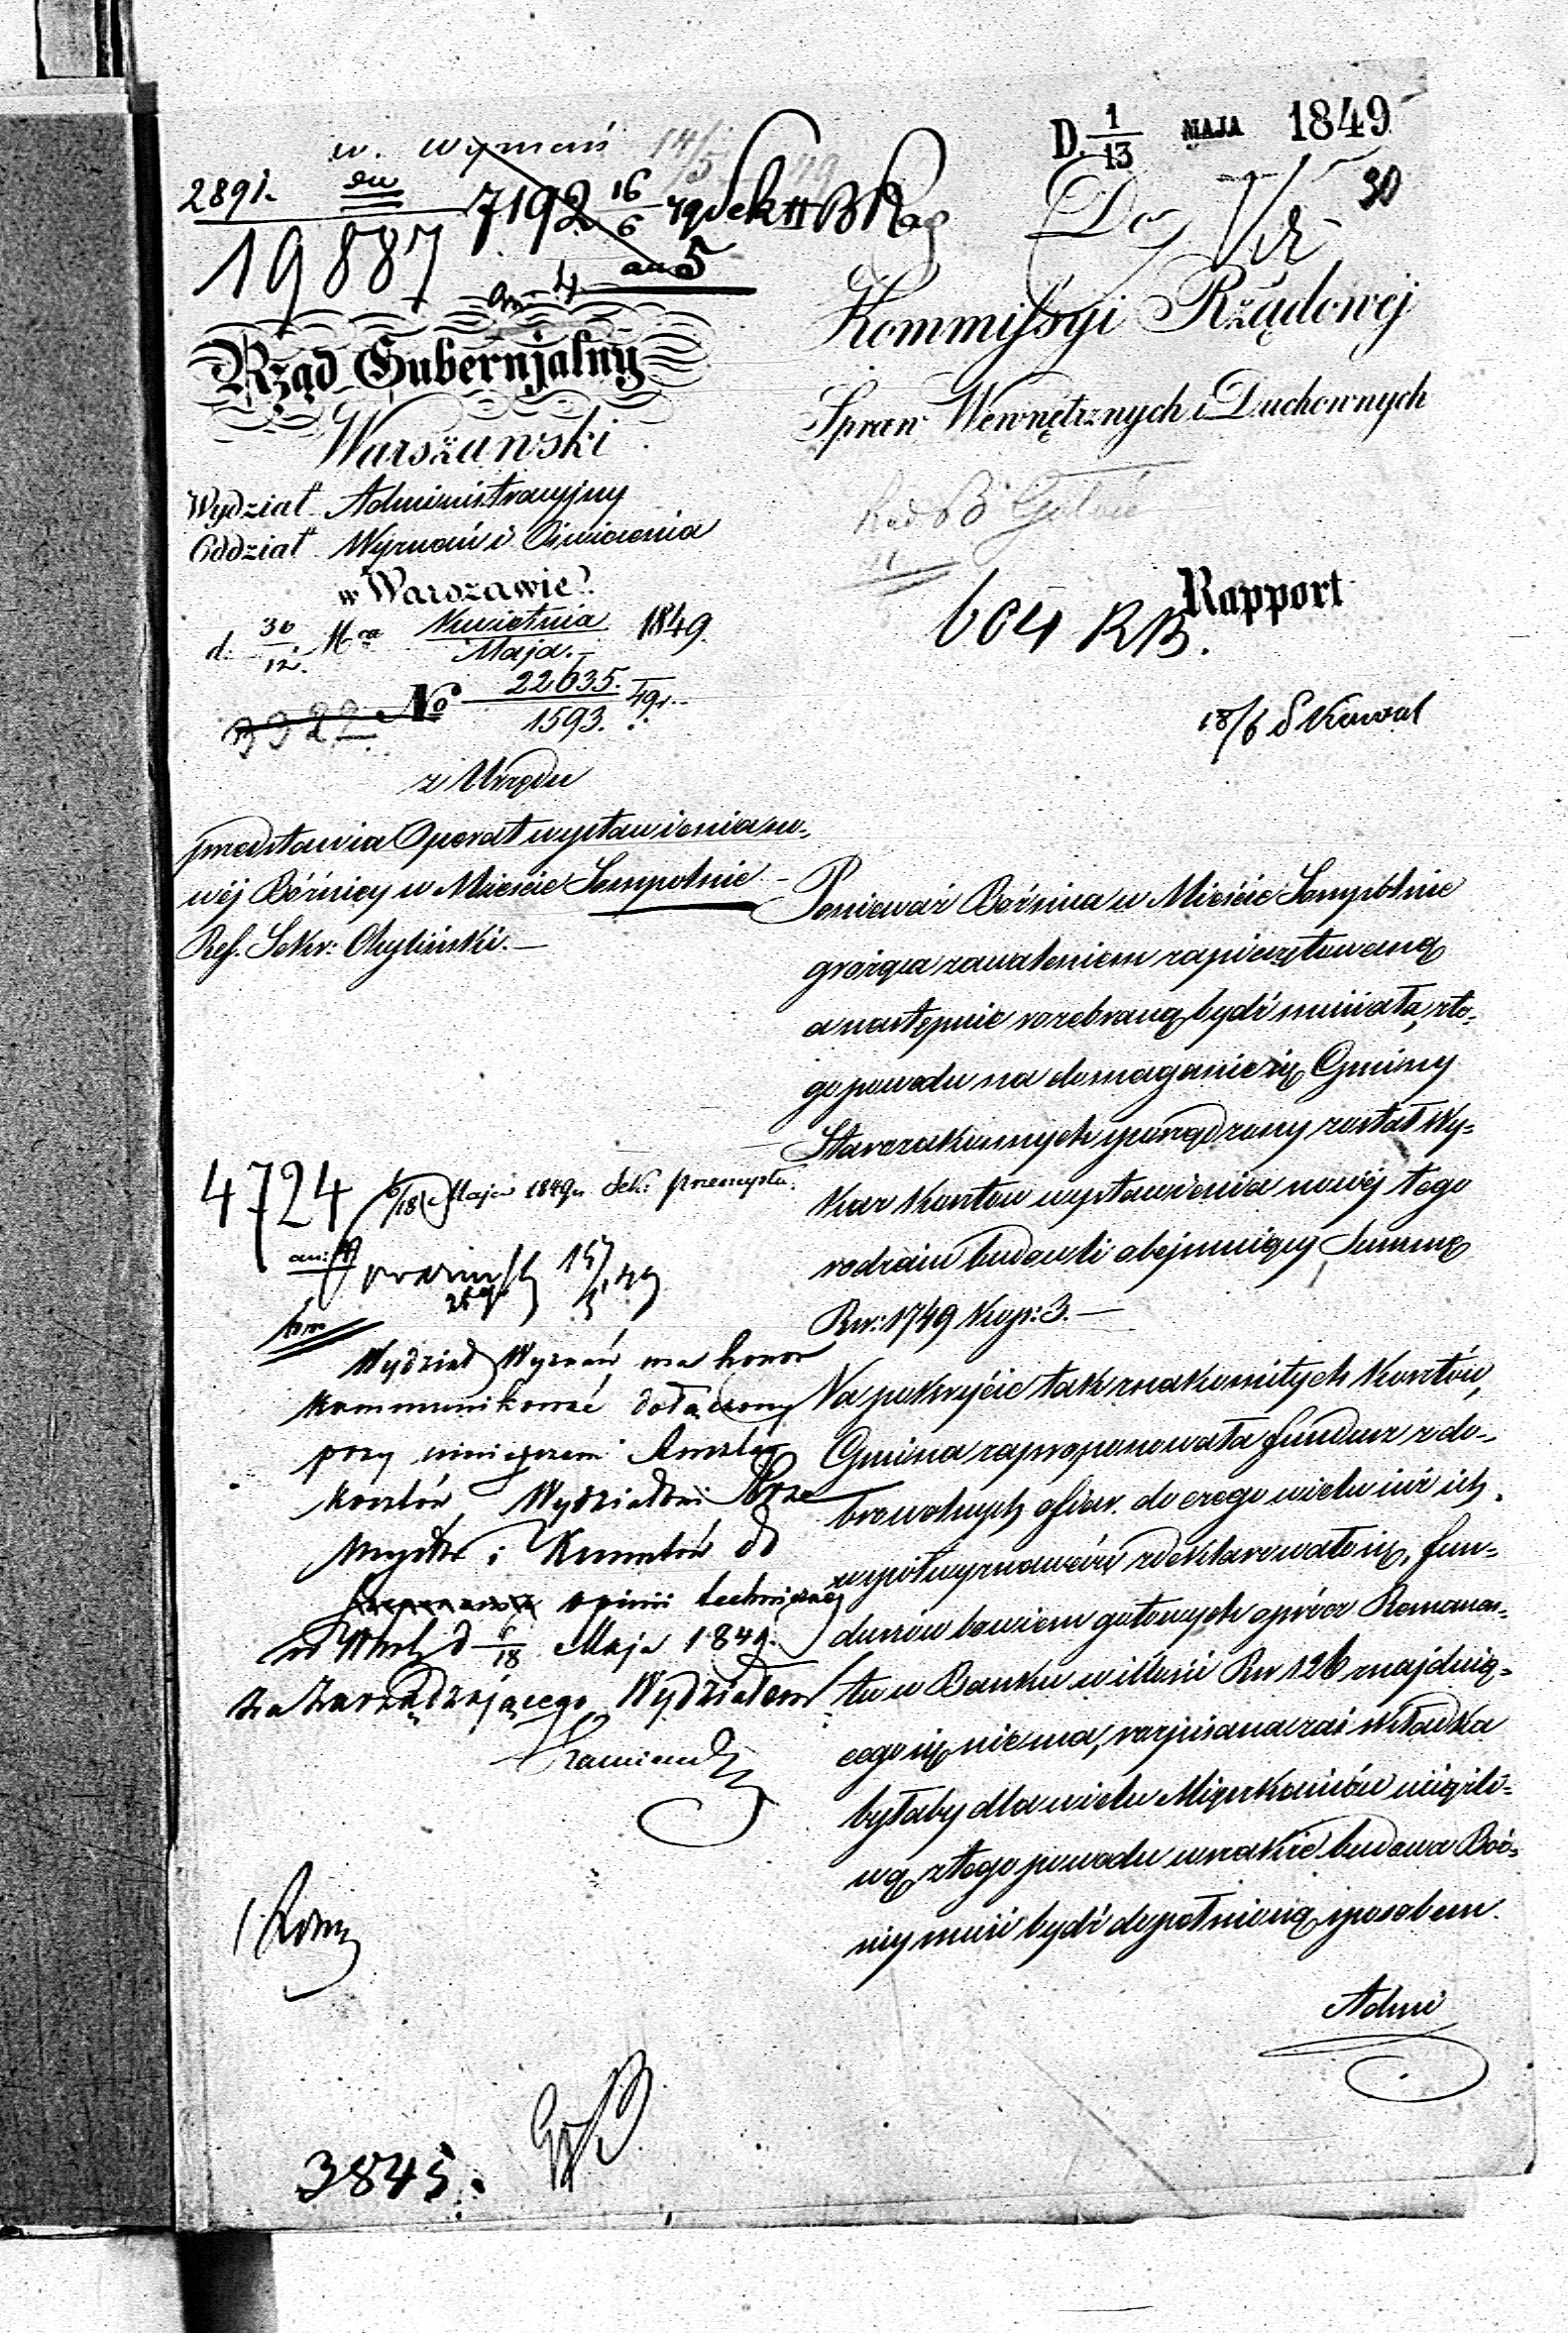 D. 1/13 MAJA 1849
w. wyznań
2891.
7192 16/6 49 Sek II B
30
19887
Do
Kommissyi Rządowej
Spraw Wewnętrznych i Duchownych
Rząd Gubernjalny
Warszawski
Wydział Administracyjny
Oddział Wyznań i Oświecenia
w Warszawie.
d. 30/12. Mca Kwietnia/Maja. 1849.
No 22635./1593. 49.
3922
z Urzędu
przedstawia Operat wystawienia no-
wéj Bóżnicy w Mieście Sempolnie
Ref. Sekr: Chyliński.
Rapport
604 RB.
18/6 S Kowal
Ponieważ Bóżnica w Mieście Sempolnie
grożąca zawaleniem zapieczętowaną
a następnie rozebraną bydź musiała, z te-
go powodu na domaganie się Gminy
Starozakonnych sporządzony został Wy-
kaz kosztów wystawienia nowéj tego
rodzaju budowli obejmujący Summę
Rsr: 1749 Kop: 3.
Na pokrycie tak znakomitych kosztów,
Gmina zaproponowała fundusz z do-
browolnych ofiar. do czego wielu już ich
współwyznawców zdeklarowało się, fun-
duszów bowiem gotowych oprócz Remanen-
tu w Banku w ilości Rsr 126 znajdują-
cego się nie ma, rozpisana zaś składka
byłaby dla wielu Mieszkańców uciążli-
wą, z tego powodu wszakże budowa Bóż-
nicy musi bydź dopełnioną sposobem
Admi
4724
6/18 Maja 1849 r. Sek: przemysłu.
Wydział Wyznań ma honor
kommunikować dołączony
przy niniejszem Anszlag
kosztów Wydziałowi Prze
mysłu i Kunsztów do
opinii technicznej
d 6/18 Maja 1849.
Za Zarządzającego Wydziałem
3845.